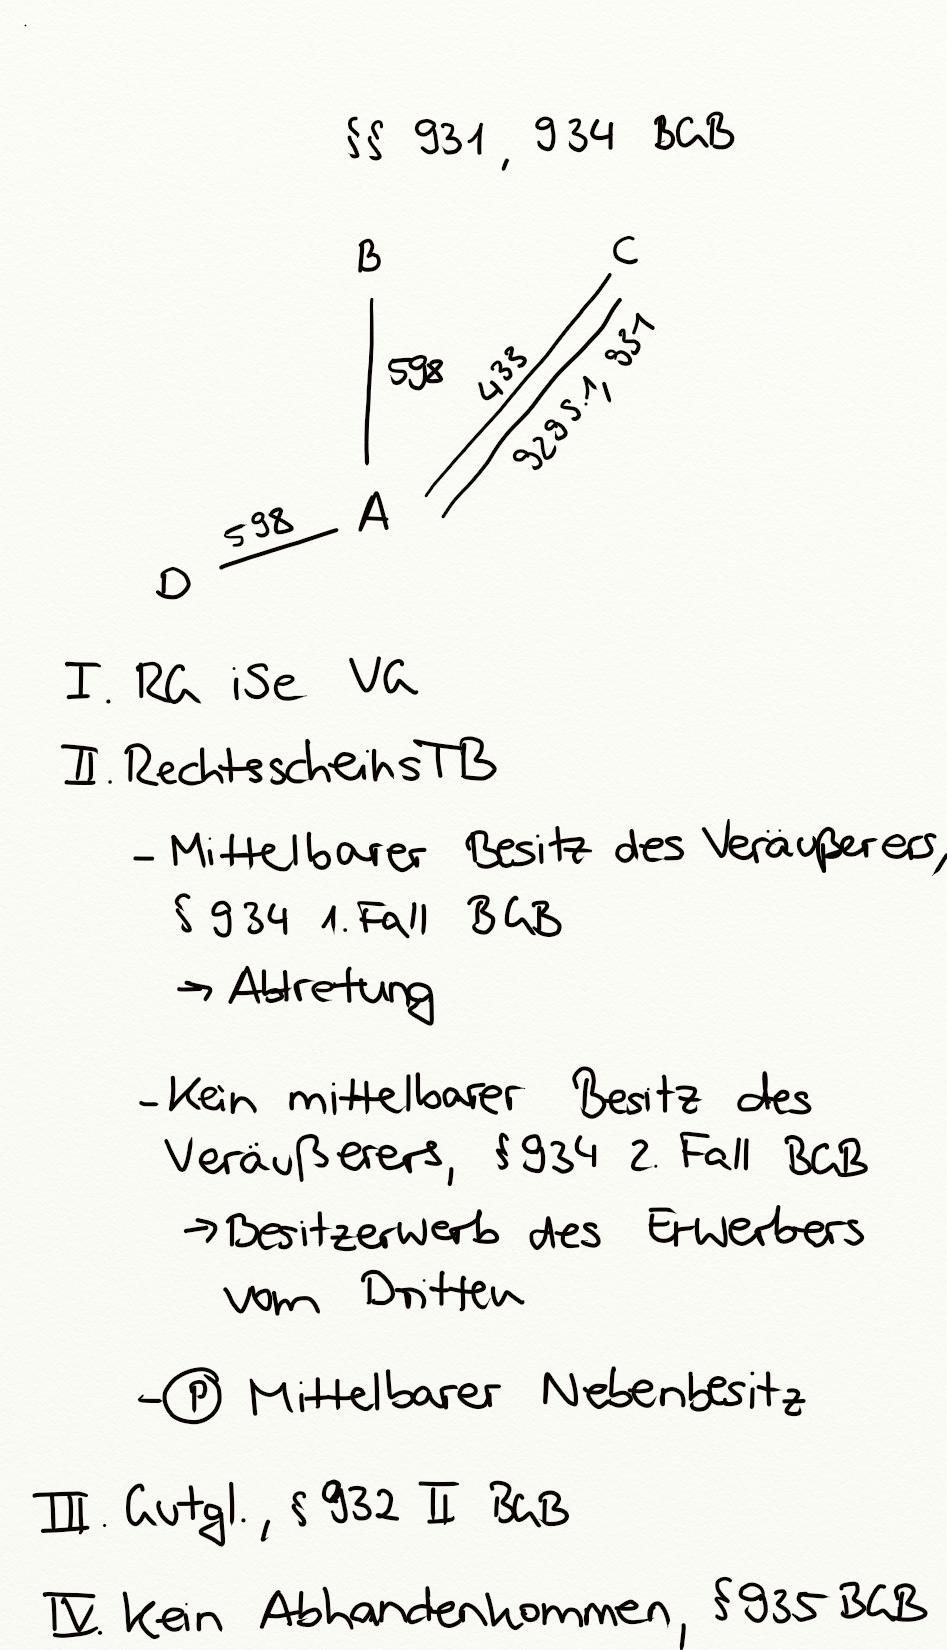 §§ 931, 934 BGB
B
C
598
433
929 S. 1, 931
A
598
D
I. RG iSe VG
II. RechtsscheinsTB
- Mittelbarer Besitz des Veräußerers,
§ 934 1. Fall BGB
→ Abtretung
- Kein mittelbarer Besitz des
Veräußerers, § 934 2. Fall BGB
→ Besitzerwerb des Erwerbers
vom Dritten
- Ⓟ Mittelbarer Nebenbesitz
III. Gutgl., § 932 II BGB
IV. Kein Abhandenkommen, § 935 BGB